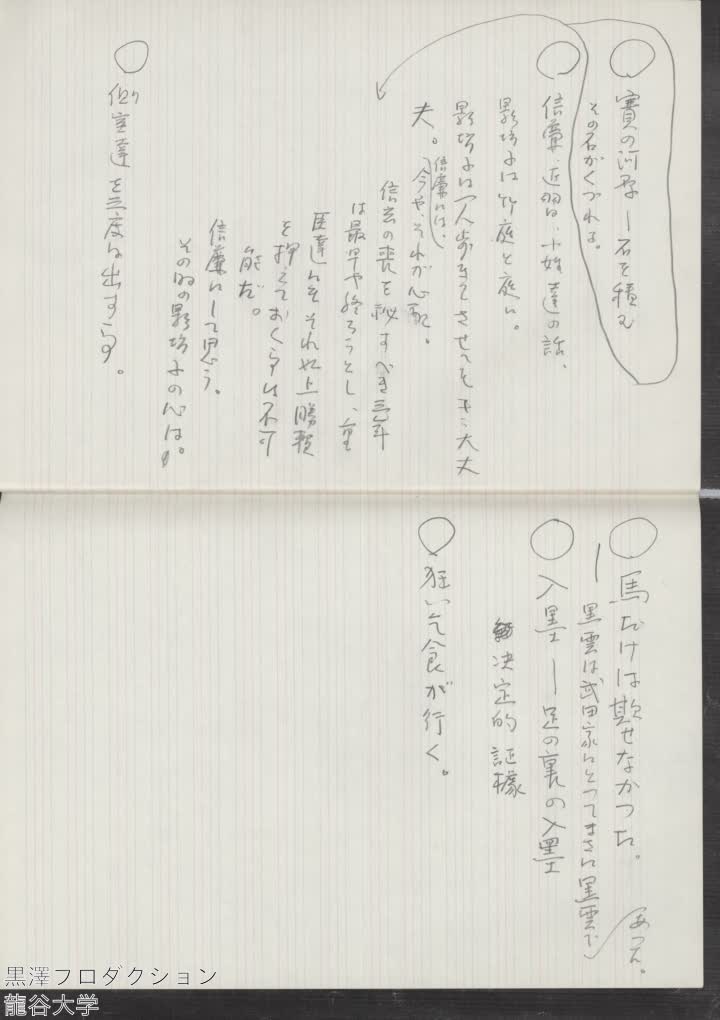 賽の河原—石を積む
その石がくづれる。
信廉、近習、小姓達の話、
影武者は竹庭と庭に。
影武者は一人歩きさせてももう大丈
夫。
信廉には、
今や、それが心配。
信玄の喪を秘すべき三年
は最早や終ろうとし、重
臣達にもそれ以上勝頼
を押えておく事は不可
能だ。
信廉にして思う。
その時の影武者の心は。
側室達を三度は出す事。
馬だけは欺せなかった。
—黒雲は武田家にとってまさに黒雲で
あった。
入墨—足の裏の入墨
決定的証拠
狂い乞食が行く。
黒澤プロダクション
龍谷大学